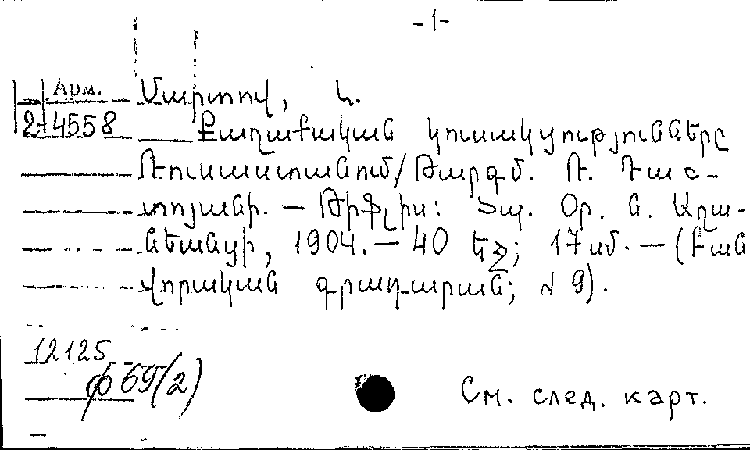 -1-
Арм.
2-4558
Մարտով, Ն.
Քաղաքական կուսակցությունները
Ռուսաստանում/Թարգմ. Ռ. Դաշ-
տոյանի. — Թիֆլիս: Տպ. Օր. Ն. Աղա-
նեանցի, 1904. — 40 եջ; 17սմ. — (Բան
վորական գրադարան; № 9).
12125
ф 69(2)
См. след. карт.